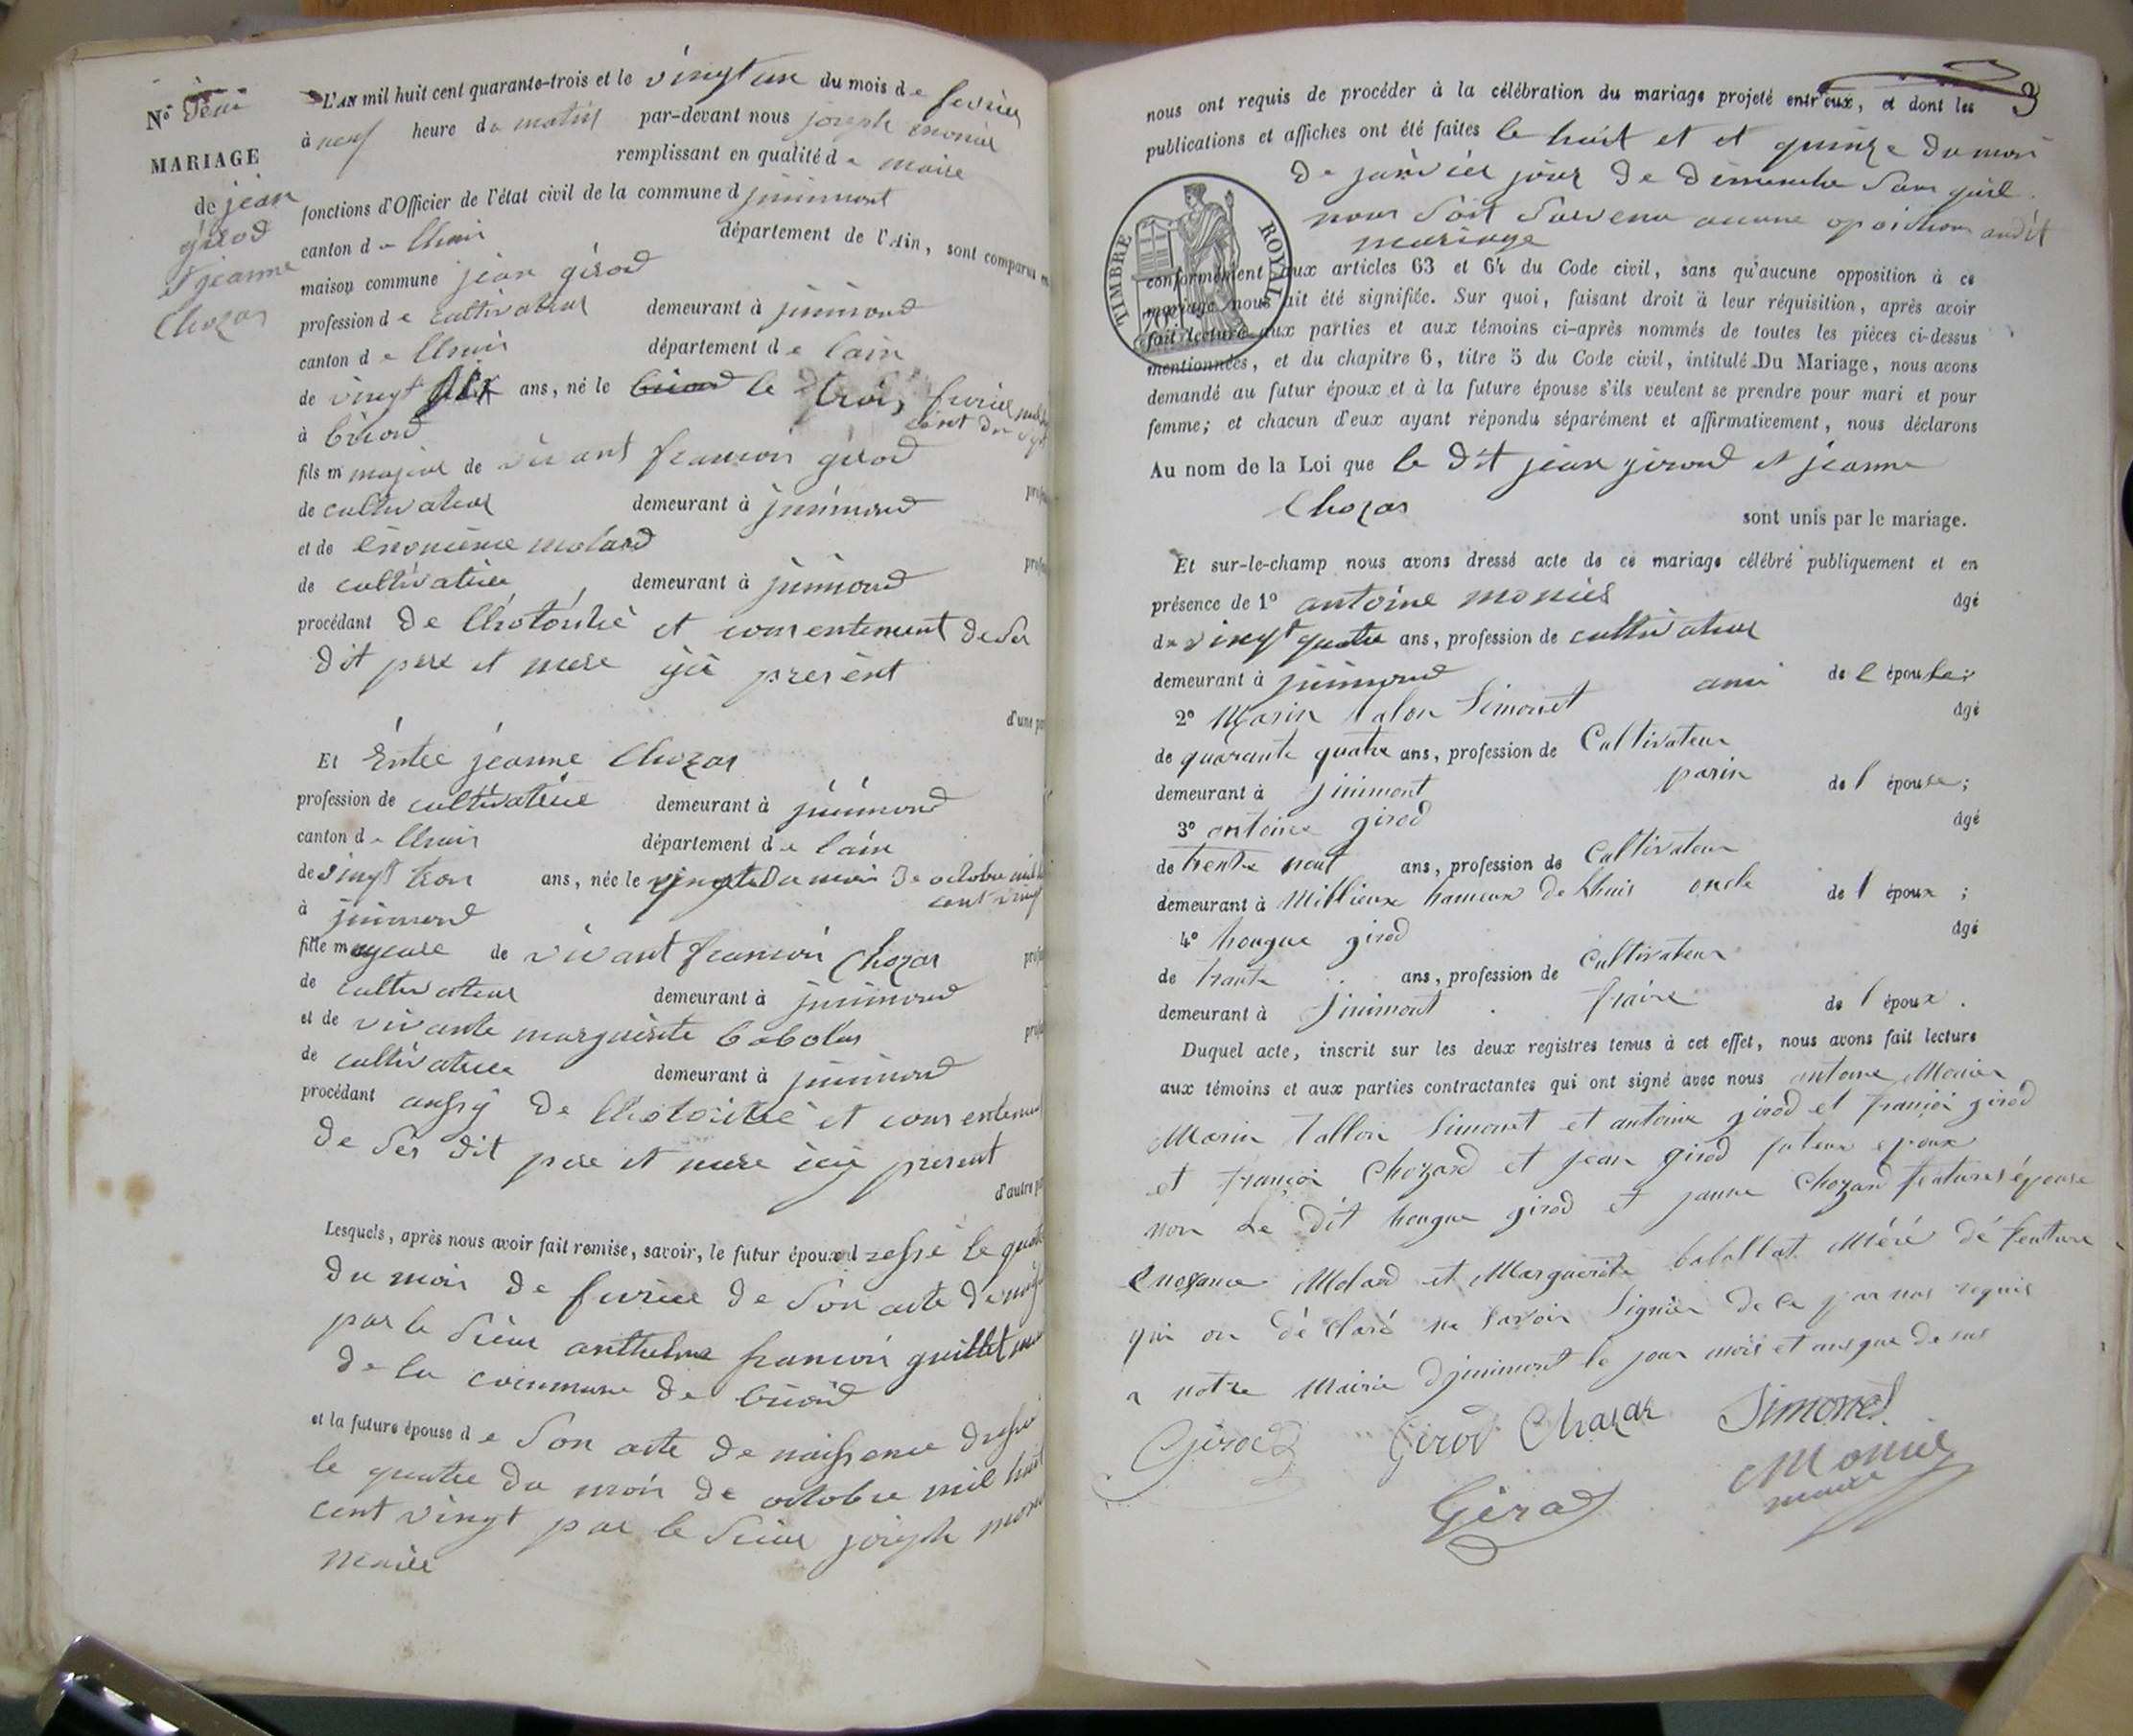 L'AN mil huit cent quarante-trois et le vingt un du mois de fevrier
à neuf heure du matin par-devant nous joseph monier
remplissant en qualité de maire
fonctions d'Officier de l'état civil de la commune d jnimont
canton de lhuis département de l'Ain, sont comparus en
maison commune jean girod
profession de cultivateur demeurant à jnimond
canton de lhuis département de lain
de vingt six ans, né le briord le trois fevrier
à briord
fils majeur de vivant francois girod
de cultivateur demeurant à jnimond
et de molard
de cultivatrice demeurant à jnimond
procédant de lhotoritré et consentement de ses
dit pere et mere ici present
d'une pa
Et Entre jeanne Chozas
profession de cultivatrice demeurant à jnimond
canton de lhuis département de lain
de vingt trois ans, née le du mois de octobre mil
cent vingt
à jnimond
fille mageure de vivant francois Chozas
de cultivateur demeurant à jnimond
et de vivante marguerite babolas
de cultivatrice demeurant à jnimond
procédant aussy de lhotoritré et consentement
de ses dit pere et mere icy present
d'autre pa
Lesquels, après nous avoir fait remise, savoir, le futur époux d
du mois de fevrier de son acte de
par le sieur anthelme francois guillet
de la commune de briord
et la future épouse de son acte de naissance dresse
le quatre du mois de octobre mil huit
cent vingt par le sieur joseph
maire
N°
MARIAGE
de jean
girod
et jeanne
Chozas
3
nous ont requis de procéder à la célébration du mariage projeté entr'eux, et dont les
publications et affiches ont été faites le huit et et quinze du mois
de janvier jour de dimenche sans quil
nous soit survenu aucune oposition audit
mariage
TIMBRE ROYAL
conformément aux articles 63 et 64 du Code civil, sans qu'aucune opposition à ce
mariage nous ait été signifiée. Sur quoi, faisant droit à leur réquisition, après avoir
fait lecture aux parties et aux témoins ci-après nommés de toutes les pièces ci-dessus
mentionnées, et du chapitre 6, titre 5 du Code civil, intitulé Du Mariage, nous avons
demandé au futur époux et à la future épouse s'ils veulent se prendre pour mari et pour
femme; et chacun d'eux ayant répondu séparément et affirmativement, nous déclarons
Au nom de la Loi que le dit jean girond et jeanne
Chozas
sont unis par le mariage.
Et sur-le-champ nous avons dressé acte de ce mariage célébré publiquement et en
présence de 1° antoine monier âgé
de vingt quatre ans, profession de cultivateur
demeurant à jnimond ami de l épouse;
2° Marin talon Simonet âgé
de quarante quatre ans, profession de Cultivateur
demeurant à jnimont parin de l épouse;
3° antoine girod âgé
de trente neuf ans, profession de Cultivateur
demeurant à Millieux hameux de Lhuis oncle de l époux;
4° hougue girod âgé
de trante ans, profession de Cultivateur
demeurant à jnimont fraire de l époux.
Duquel acte, inscrit sur les deux registres tenus à cet effet, nous avons fait lecture
aux témoins et aux parties contractantes qui ont signé avec nous antoine Monier
Marin tallon Simonet et antoine girod et françoi girod
et françoi Chozard et jean girod futeur epoux
non Le dit hougue girod et janne Chozard feutures épouse
Molard et Marguerite baballat Méré dé feuture
qui on déclaré ne savoir Signier de ce par nos requis
a notre Mairie djnimont le jour mois et an que desus
Girod Girod Chazar Simonet
Monier
maire
Girod